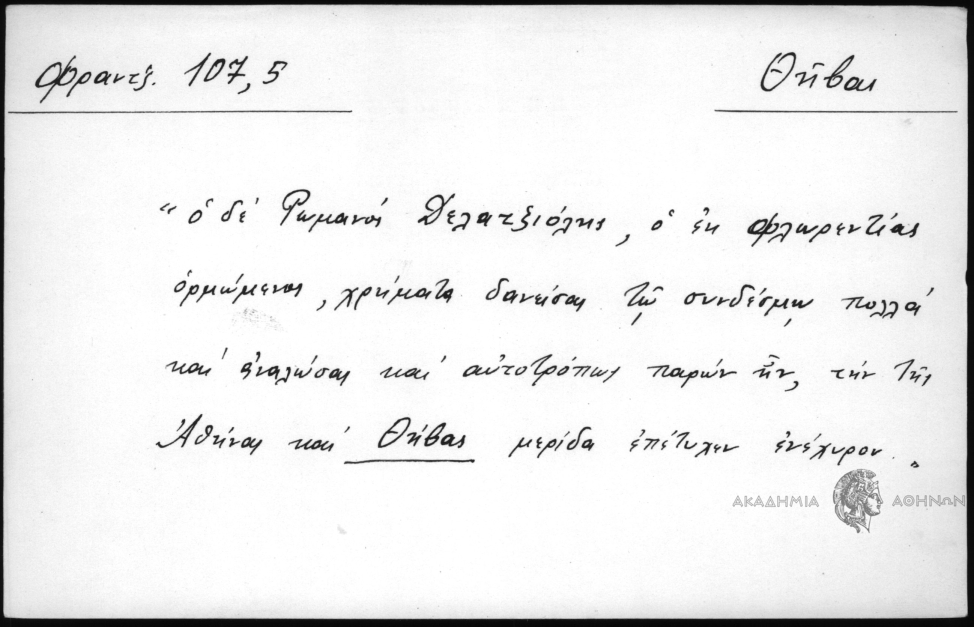 Φραντζ. 107,5
Θῆβαι
“ ὁ δέ Ρωμανός Δελατζιόλης, ὁ ἐκ Φλωρεντίας
ὁρμώμενος, χρήματα δανείσας τῷ συνδέσμῳ πολλά
καί ἀναλώσας καί αὐτοτρόπως παρών ἦν, τήν τῆς
Ἀθήνας καί Θήβας μερίδα ἐπέτυχεν ἐνέχυρον „
ΑΚΑΔΗΜΙΑ ΑΘΗΝΩΝ